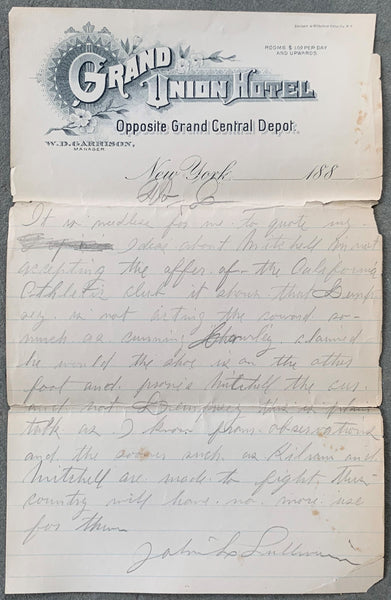 ROOMS $ 1.00 PER DAY
AND UPWARDS.
GRAND
UNION HOTEL
Opposite Grand Central Depot.
W.D. GARRISON,
MANAGER
New York 188
It is needless for me to quote my
Idea about Mitchell Mr not
accepting the offer of the California
Athletic club it shows that Demp
sey is not acting the coward so
much as cunning Charley claimed
he would the shoe is on the other
foot and proves Mitchell the cur
and not Dempsey this is plain
talk as I know from observations
and the sooner such as Kilrain and
Mitchell are made to fight this
country will have no more use
for them
John L Sullivan